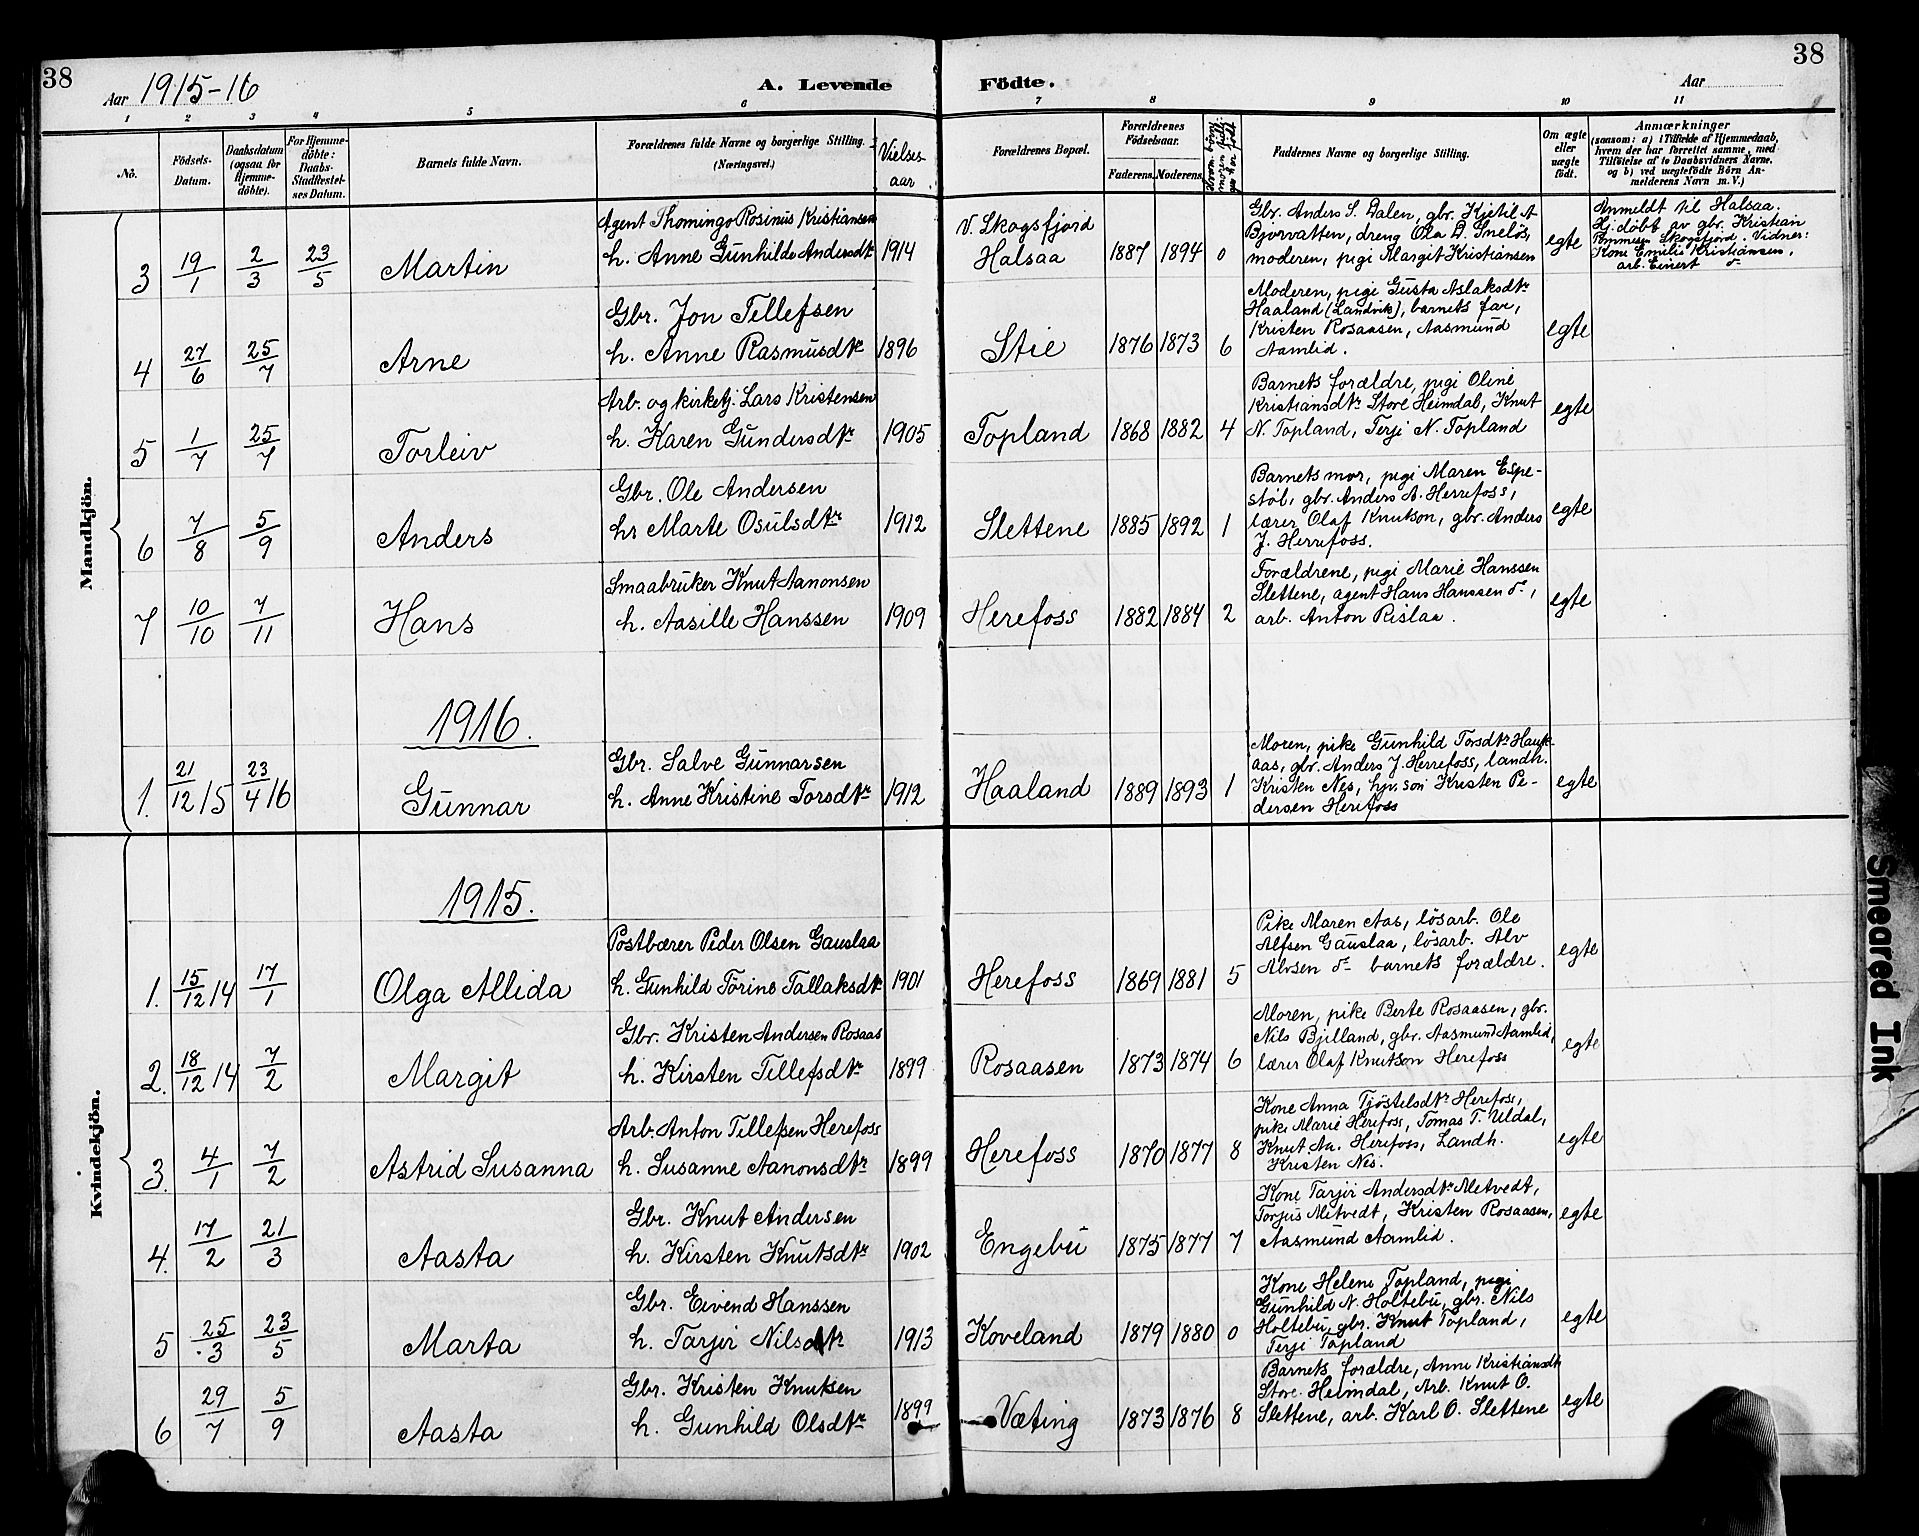 38
Aar 1915-16
A. Levende Födte.
Aar
38
1 2 3 4 5 6 7 8 9 10 11
No.
Födsels-Datum.
Daabsdatum (ogsaa for Hjemme-döbte).
For Hjemme-döbte: Daabs-Stadfæstelses Datum.
Barnets fulde Navn.
Forældrenes fulde Navne og borgerlige Stilling. (Næringsvei.)
Vielses aar
Forældrenes Bopæl.
Forældrenes Födselsaar.
Faderens. Moderens.
Faddernes Navne og borgerlige Stilling.
Om ægte eller uægte födt.
Anmærkninger
(saasom: a) i Tilfælde af Hjemmedaab,
hvem der har forrettet samme, med
Tilföielse af to Daabsvidners Navne.
og b) ved uægtefödte Börn An-
melderens Navn m. V.)
Mandkjön.
3 19/1 2/3 23/5 Martin
Agent Thomingo Rosinus Kristiansen
h. Anne Gunhilde Andersdtr 1914
V. Skogsfjord
Halsaa 1887 1894 0
Gbr. Anders S. Dalen, gbr. Kjetil A
Bjorvatten, dreng Ola D. Sneløs,
moderen, pigi Margit Kristiansen
egte
Anmeldt til Halsaa.
Hj.døbt av gbr. Kristian
Tommesen Skogsfjord. Vidner:
Kone Emilie Kristiansen,
arb. Einert do
4 27/6 25/7 Arne
Gbr. Jon Tellefsen
h. Anne Rasmusdtr 1896
Stie 1876 1873 6
Moderen, pige Gusta Aslaksdtr
Haaland (Landvik), barnets far,
Kristen Rosaasen, Aasmund
Aamlid.
egte
5 1/7 25/7 Torleiv
Arb. og kirketj. Lars Kristensen
h. Karen Gundersdtr 1905
Topland 1868 1882 4
Barnets forældre, pigi Oline
Kristiansdtr Store Heimdal, Knut
N. Topland, Terji N. Topland
egte
6 7/8 5/9 Anders
Gbr. Ole Andersen
hs Marte Osulsdtr 1912
Slettene 1885 1892 1
Barnets mor, pigi Maren Espe-
støl, gbr. Anders A. Herrefoss,
lærer Olaf Knutson, gbr. Anders
J. Herrefoss.
egte
7 10/10 7/11 Hans
Smaabruker Knut Aanonsen
h. Aasille Hanssen 1909
Herefoss 1882 1884 2
Forældrene, pigi Marie Hanssen
Slettene, agent Hans Hanssen do,
arb. Anton Rislaa.
egte
1916.
1. 21/12 15 23/4 16 Gunnar
Gbr. Salve Gunnarsen
h. Anne Kristine Torsdtr 1912
Haaland 1889 1893 1
Moren, pike Gunhild Torsdtr Hauk-
aas, gbr. Anders J. Herrefoss, landh.
Kristen Nes, hp. søn Kristen Pe-
dersen Herefoss
egte
Kvindekjön.
1915.
1. 15/12 14 17/1 Olga Allida
Postbærer Peder Olsen Gauslaa
h. Gunhild Torine Tallaksdtr 1901
Herefoss 1869 1881 5
Pike Maren Aas, løsarb. Ole
Alfsen Gauslaa, løsarb. Alv
Alvsen do barnets forældre.
egte
2. 18/12 14 7/2 Margit
Gbr. Kristen Andersen Rosaas
h. Kirsten Tellefsdtr 1899
Rosaasen 1873 1874 6
Moren, pike Berte Rosaasen, gbr.
Nils Bjelland, gbr. Aasmund Aamlid,
lærer Olaf Knutson Herefoss
egte
3. 4/1 7/2 Astrid Susanna
Arb. Anton Tellefsen Herefoss
h. Susanne Aanonsdtr 1899
Herefoss 1870 1877 8
Kone Anna Tjøstelsdtr Herefoss,
pike Marie Herefoss, Tomas T. Uldal,
Knut Aa. Herefoss, Landh.
Kristen Nes.
egte
4. 17/2 21/3 Aasta
Gbr. Knut Andersen
h. Kirsten Knutsdtr 1902
Engebu 1875 1877 7
Kone Tarjer Andersdtr Metvedt,
Torjus Metvedt, Kristen Rosaasen,
Aasmund Aamlid.
egte
5 25/3 23/5 Marta
Gbr. Eivend Hanssen
h. Tarjer Nilsdtr 1913
Koveland 1879 1880 0
Kone Helene Topland, pigi
Gunhild N. Holtebu, gbr. Nils
Holtebu, gbr. Knut Topland,
Terji Topland
egte
6 29/7 5/9 Aasta
Gbr. Kristen Knutsen
h. Gunhild Olsdtr 1899
Væting 1873 1876 8
Barnets forældre, Anne Kristiansdtr
Store Heimdal, Arb. Knut O.
Slettene, arb. Karl O. Slettene
egte
Smeared Ink